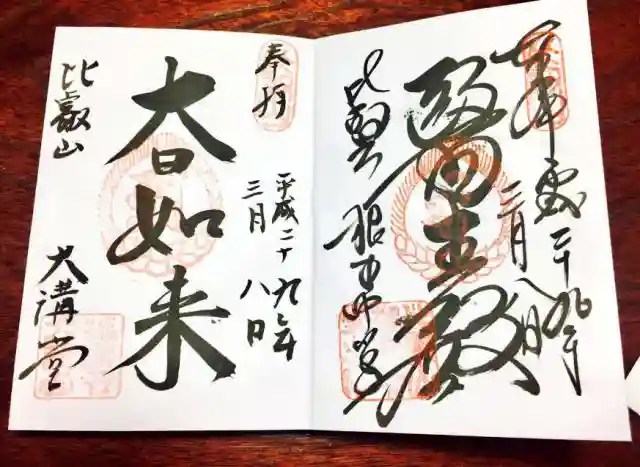 奉拝
平成二十九年
三月八日
醫王殿
比叡山
根本中堂
奉拝
平成二十九年
三月八日
大日如来
比叡山
大講堂